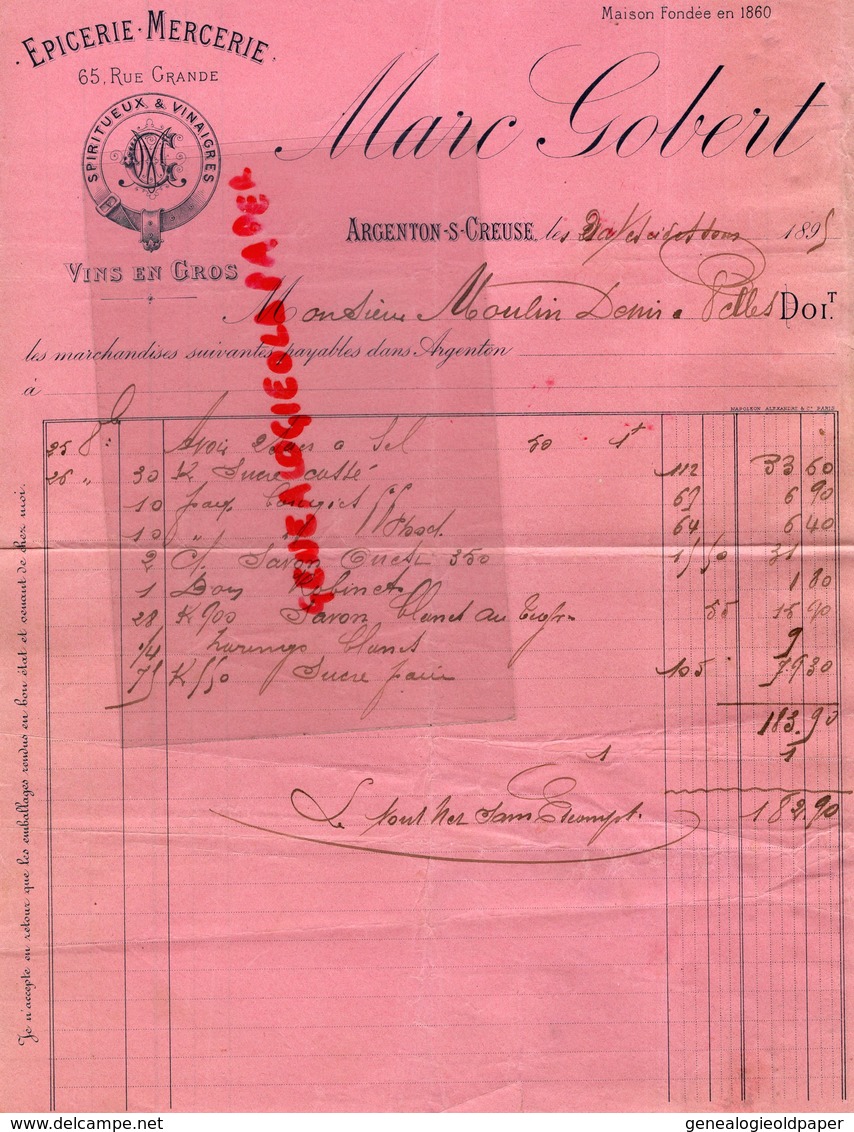 Maison Fondée en 1860
EPICERIE · MERCERIE
65, RUE GRANDE
SPIRITUEUX & VINAIGRES
VINS EN GROS
Marc Gobert
ARGENTON-S-CREUSE, les 1895
Monsieur Moulin Denis a DOIT.
les marchandises suivantes payables dans Argenton
à
NAPOLEON ALEXANDRE & Cie PARIS
25 8b Avoir 2 a Sel 50 1t
26 " 30 K Sucre cassé 112 33 60
10 paq bougies 69 6 90
10 " " 64 6 40
2 Savon 350 15 50 31
1 Robinet 1 80
28 K 900 Savon blanc au 55 15 90
1/4 harengs blancs 9
75 K 550 Sucre 105 79 30
183.90
1 1
Le tout Net Sans Escompte 182.90
Je n'accepte en retour que les emballages rendus en bon état et venant de chez moi.
GENEALOGIEOLDPAPER
delcampe.net
genealogieoldpaper